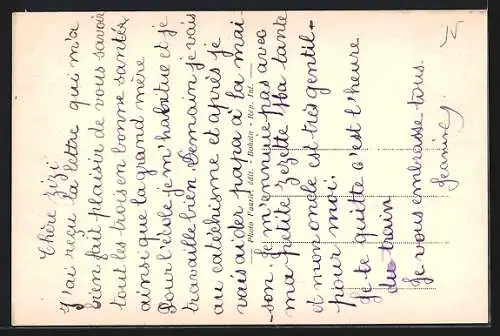 Chère Zizi
J'ai reçu la lettre qui m'a
bien fait plaisir de vous savoir
tout les trois en bonne santée,
ainsi que la grand mère
Pour l'école je m'habitue et je
travaille bien. Demain je vais
au catéchisme et après je
vais aider papa à la mai-
son. Je m'ennuie pas avec
ma petite Zezette. Ma tante
et mon oncle est très gentil
pour moi.
Je te quitte c'est l'heure
du train
Je vous embrasse tous.
Jeanine
Photo Fauriat édit. - Rép. Int.